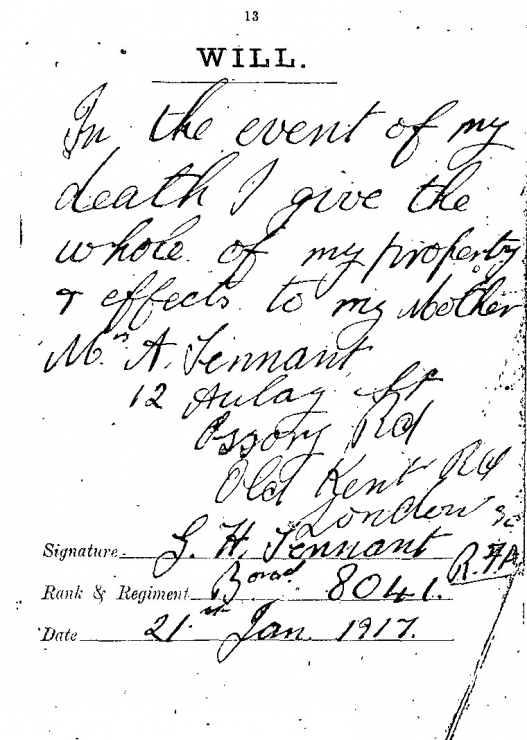 13
WILL.
In the event of my
death I give the
whole of my property
& effects to my Mother
Mrs A. Tennant
12 Aulay St
Ossory Rd
Old Kent Rd
London SE
Signature G. H. Tennant
Rank & Regiment Bord 8041. R.F.A
Date 21st Jan. 1917.